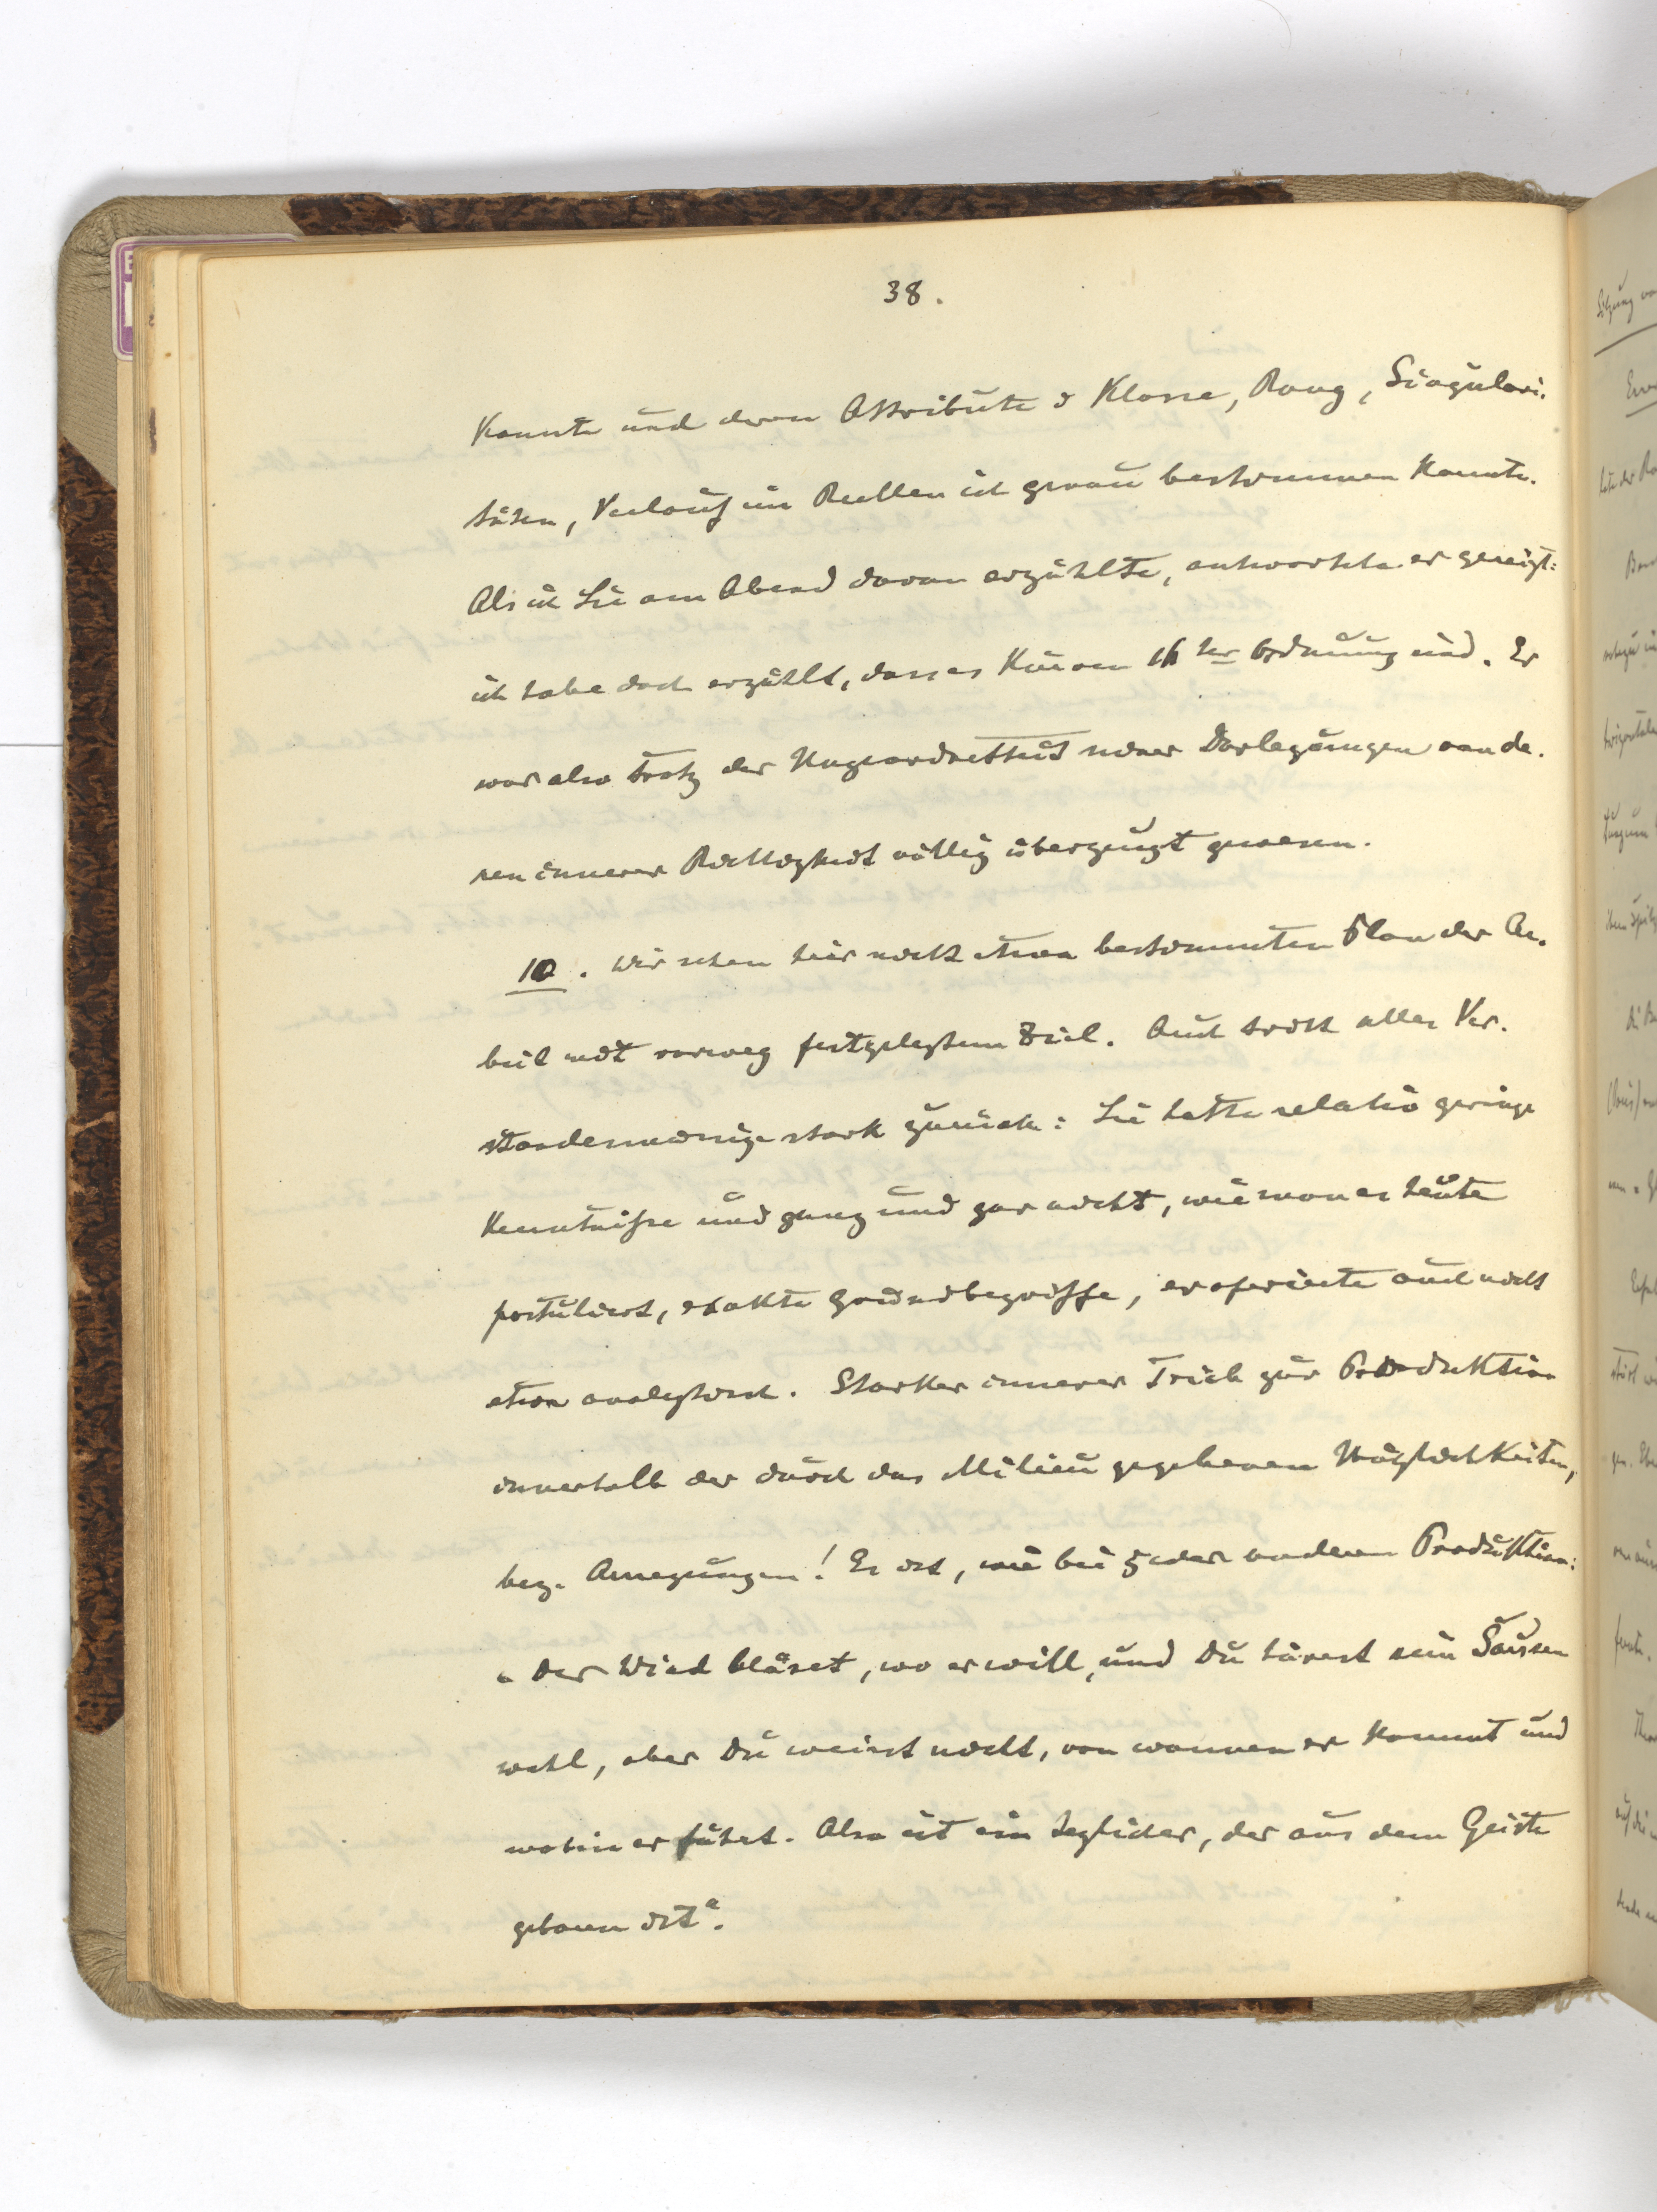 38.
konnte und deren Attribute d Klasse, Rang, Singulari-
täten, Verlauf im Reellen ich genau bestimmen konnte.
Als ich Lie am Abend davon erzählte, antwortete er gereizt:
ich habe doch erzählt, dass es Kurven 16 ter Ordnung sind. Er
war also trotz der Ungeordnetheit seiner Darlegungen von de-
ren innerer Richtigkeit völlig überzeugt gewesen.
10. Wir sehen hier nicht etwa bestimmten Plan der Ar-
beit mit vorweg festgelegtem Ziel. Auch tritt alles Ver-
standesmässige stark zurück: Lie hatte relativ geringe
Kenntnisse und ganz und gar nicht, wie man es heute
postuliert, exakte Grundbegriffe, er operierte auch nicht
etwa analytisch. Starker innerer Trieb zur Produktion
innerhalb der durch das Milieu gegebenen Möglichkeiten,
bez. Anregungen! Es ist, wie bei jeder anderen Produktion:
"Der Wind bläset, wo er will, und Du hörest sein Sausen
wohl, aber Du weisst nicht, von wannen er kommt und
wohin er fährt. Also ist ein jeglicher, der aus dem Geiste
geboren ist".
Sitzung